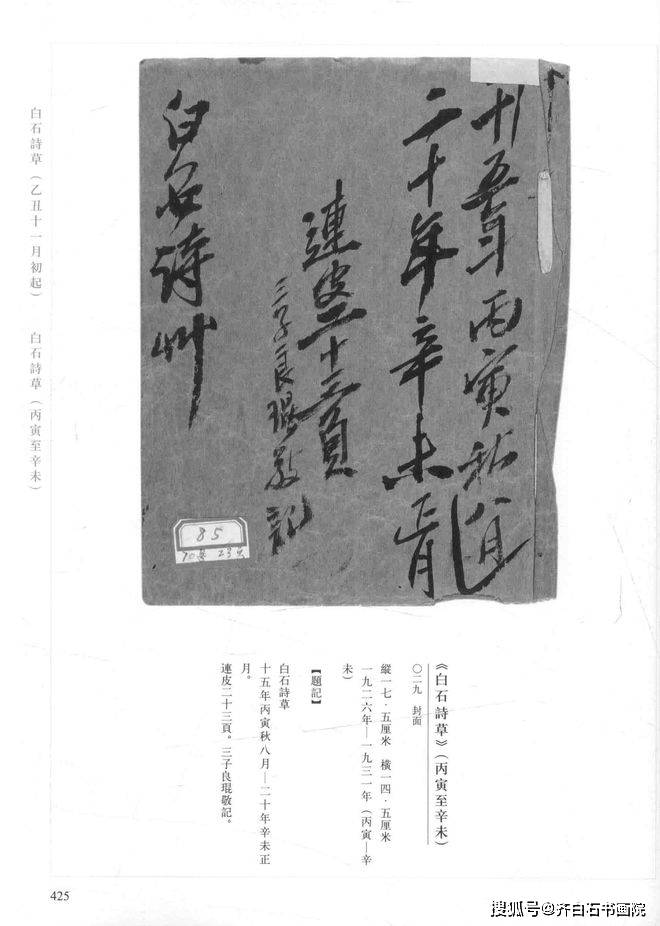 白石詩草（乙丑十一月初起）
白石詩草（丙寅至辛未）
十五年丙寅秋八月
二十年辛未正月
連皮二十三頁
三子良琨敬記
白石詩艸
85
23頁
《白石詩草》（丙寅至辛未）
〇二九 封面
縱一七·五厘米 橫一四·五厘米
一九二六年—一九三一年（丙寅—辛
未）
【題記】
白石詩草
十五年丙寅秋八月—二十年辛未正
月。
連皮二十三頁。三子良琨敬記。
425
搜狐号@齐白石书画院